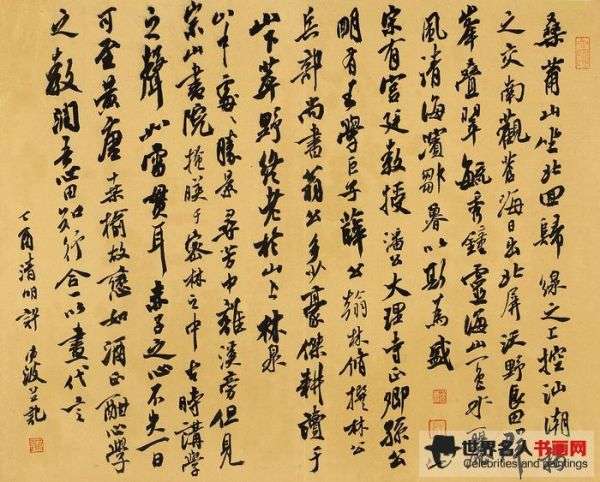 桑莆山坐北回歸線之上控汕潮揭
之交南觀蒼海日出北屏沃野良田群
峯疊翠毓秀鍾靈海山一色水麗
風清海濱鄒魯以斯為盛
宋有宮廷教授潘公大理寺正卿孫公
明有王學巨子薛公翰林脩撰林公
兵部尚書翁公多少豪傑耕讀于
山下葬野終老於山上林泉
山中處處勝景尋芳中離溪旁但見
宗山書院掩映于密林之中古時講學
之聲如雷貫耳赤子之心不失一日
可至黃唐如酒正酣心學
之教潤吾心田知行合一以畫代言
丁酉清明許東波並記
世界名人书画网
Celebrities and paintings